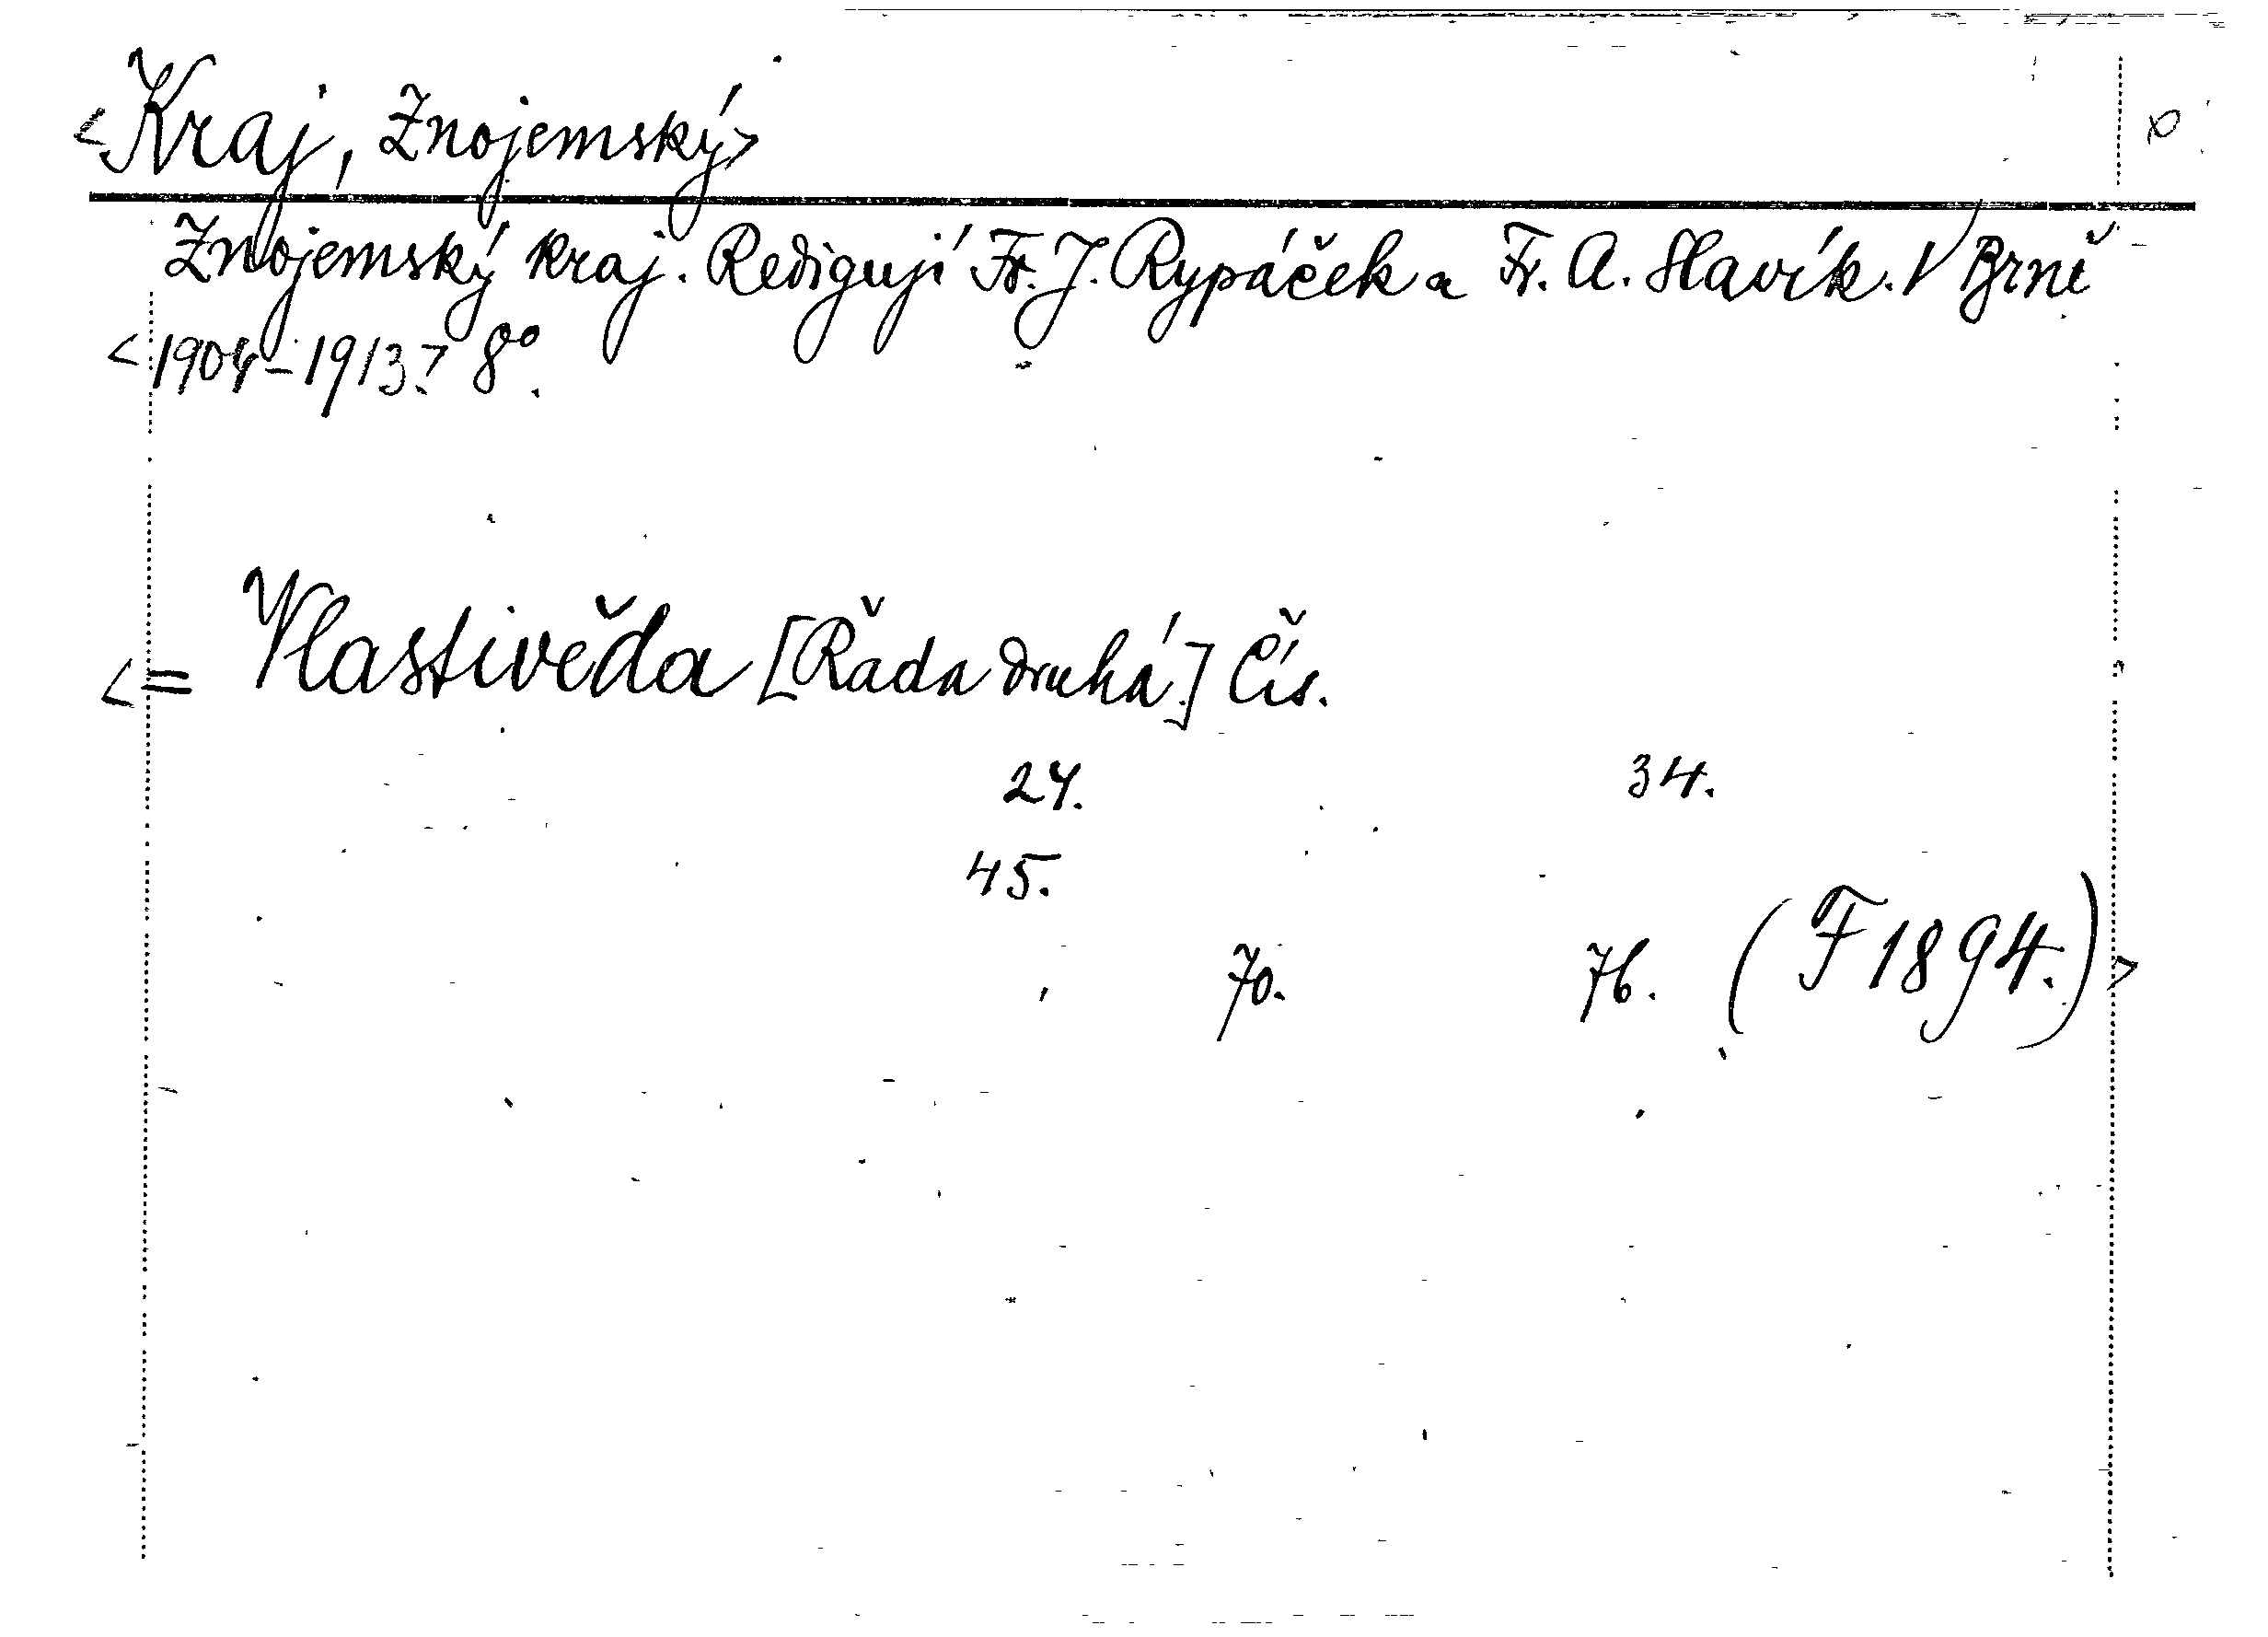 <Kraj, Znojemský>
Znojemský kraj. Redigují Fr. J. Rypáček a Fr. A. Slavík. V Brně
<1904-1913.> 8°.
<= Vlastivěda [Řada druhá.] Čís.
24. 34.
45.
70. 76. (F 1894.)>